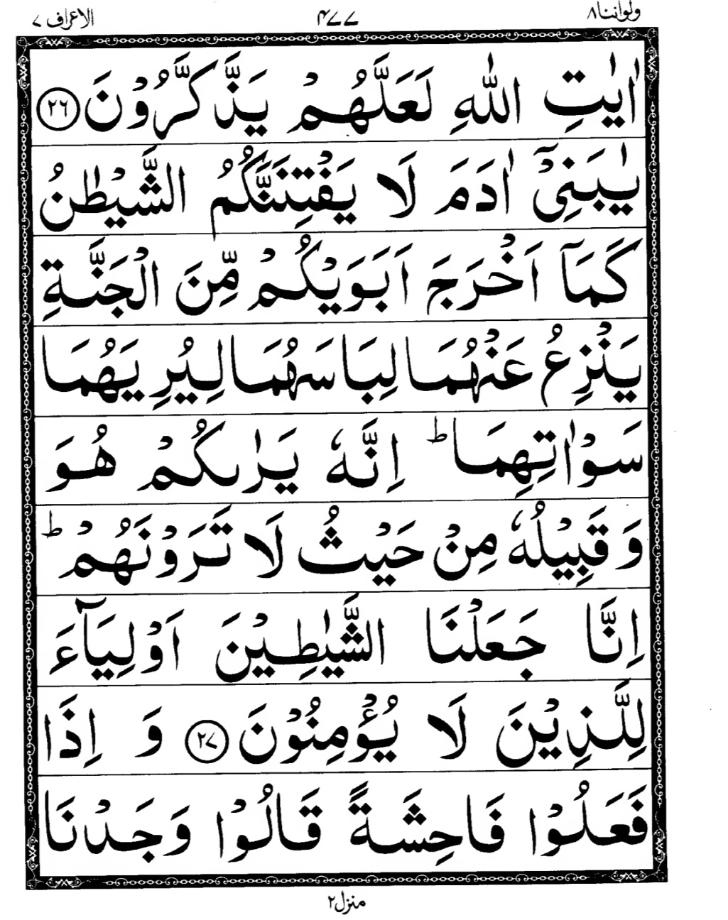 ولواننا٨ ٤٧٧ الاعراف ٧
اٰيٰتِ اللّٰهِ لَعَلَّهُمْ يَذَّكَّرُوْنَ ﴿٢٦﴾
يٰبَنِىْٓ اٰدَمَ لَا يَفْتِنَنَّكُمُ الشَّيْطٰنُ
كَمَآ اَخْرَجَ اَبَوَيْكُمْ مِّنَ الْجَنَّةِ
يَنْزِعُ عَنْهُمَا لِبَاسَهُمَا لِيُرِيَهُمَا
سَوْاٰتِهِمَا ؕ اِنَّهٗ يَرٰىكُمْ هُوَ
وَ قَبِيْلُهٗ مِنْ حَيْثُ لَا تَرَوْنَهُمْ ؕ
اِنَّا جَعَلْنَا الشَّيٰطِيْنَ اَوْلِيَآءَ
لِلَّذِيْنَ لَا يُؤْمِنُوْنَ ﴿٢٧﴾ وَ اِذَا
فَعَلُوْا فَاحِشَةً قَالُوْا وَجَدْنَا
منزل٢